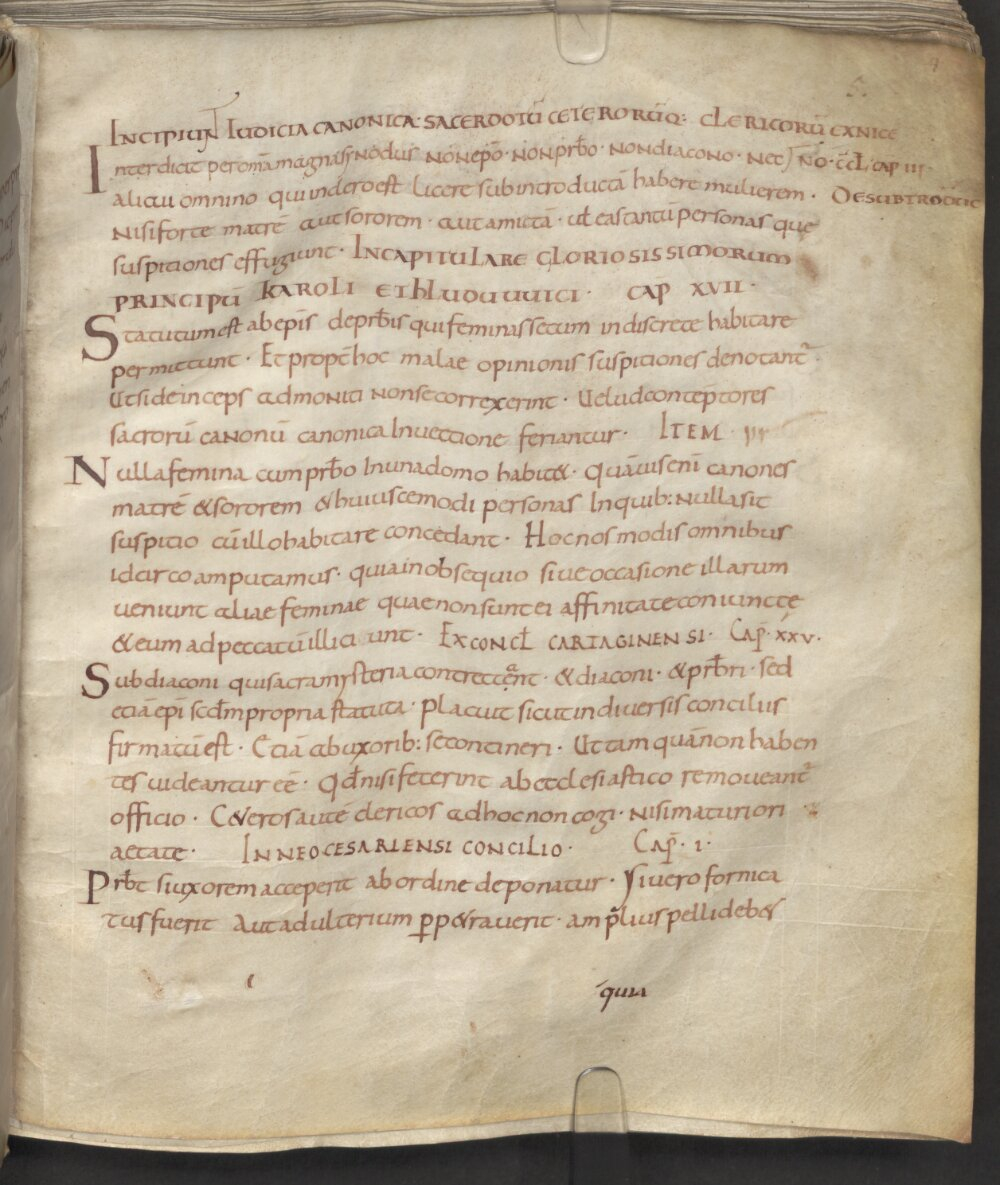 INCIPIUNT IUDICIA CANONICA· SACERDOTŪ CETERORŪQ: CLERICORŪ EX NICE
Interdicit per om̄a magna synodus non ep̄o· non prb̄o· non diacono· nec NO· CCL̄ CAP III·
alicui omnino qui in clero est licere subintroductā habere mulierem· DE SUBTRODUC
nisi forte matrē aut sororem· aut amitā· ut eas tantū personas que
suspitiones effugiunt· IN CAPITULARE GLORIOSISSIMORUM
PRINCIPŪ KAROLI ET HLUDUUUICI· CAP XVII·
Statutum est ab ep̄is de prb̄is qui feminas secum indiscrete habitare
permittunt· Et propt̄ hoc malae opinionis suspitiones denotant̄·
Ut si deinceps admoniti non se correxerint· Uelud contēptores
sacrorū canonū canonica Inuectione feriantur· ITEM III
Nulla femina cum prb̄o In una domo habit&· Quāuis enī canones
matrē & sororem & huiuscemodi personas In quib: nulla sit
suspitio cū illo habitare concedant· Hoc nos modis omnibus
idcirco amputamus· quia in obsequio siue occasione illarum
ueniunt aliae feminae quae non sunt ei affinitate coniuncte
& eum ad peccatū illiciunt· EX CONCL̄ CARTAGINENSI· CAP̄· XXV·
Subdiaconi qui sacra mysteria contrectant· & diaconi· & prb̄ri· sed
etiā ep̄i scdm̄ propria statuta· placuit sicut in diuersis conciliis
firmatū est· Etiā ab uxorib: se contineri· Ut tam quā non haben
tes uideantur eē· Qd̄ nisi fecerint ab ecclesiastico remoueant̄
officio· C&eros autē clericos ad hoc non cogi· nisi maturiori
aetate· IN NEOCESARIENSI CONCILIO· CAP̄· I·
Prb̄t si uxorem acceperit ab ordine deponatur· Si uero fornica
tus fuerit Aut adulterium perp&rauerit· amplius pelli deb&
quia